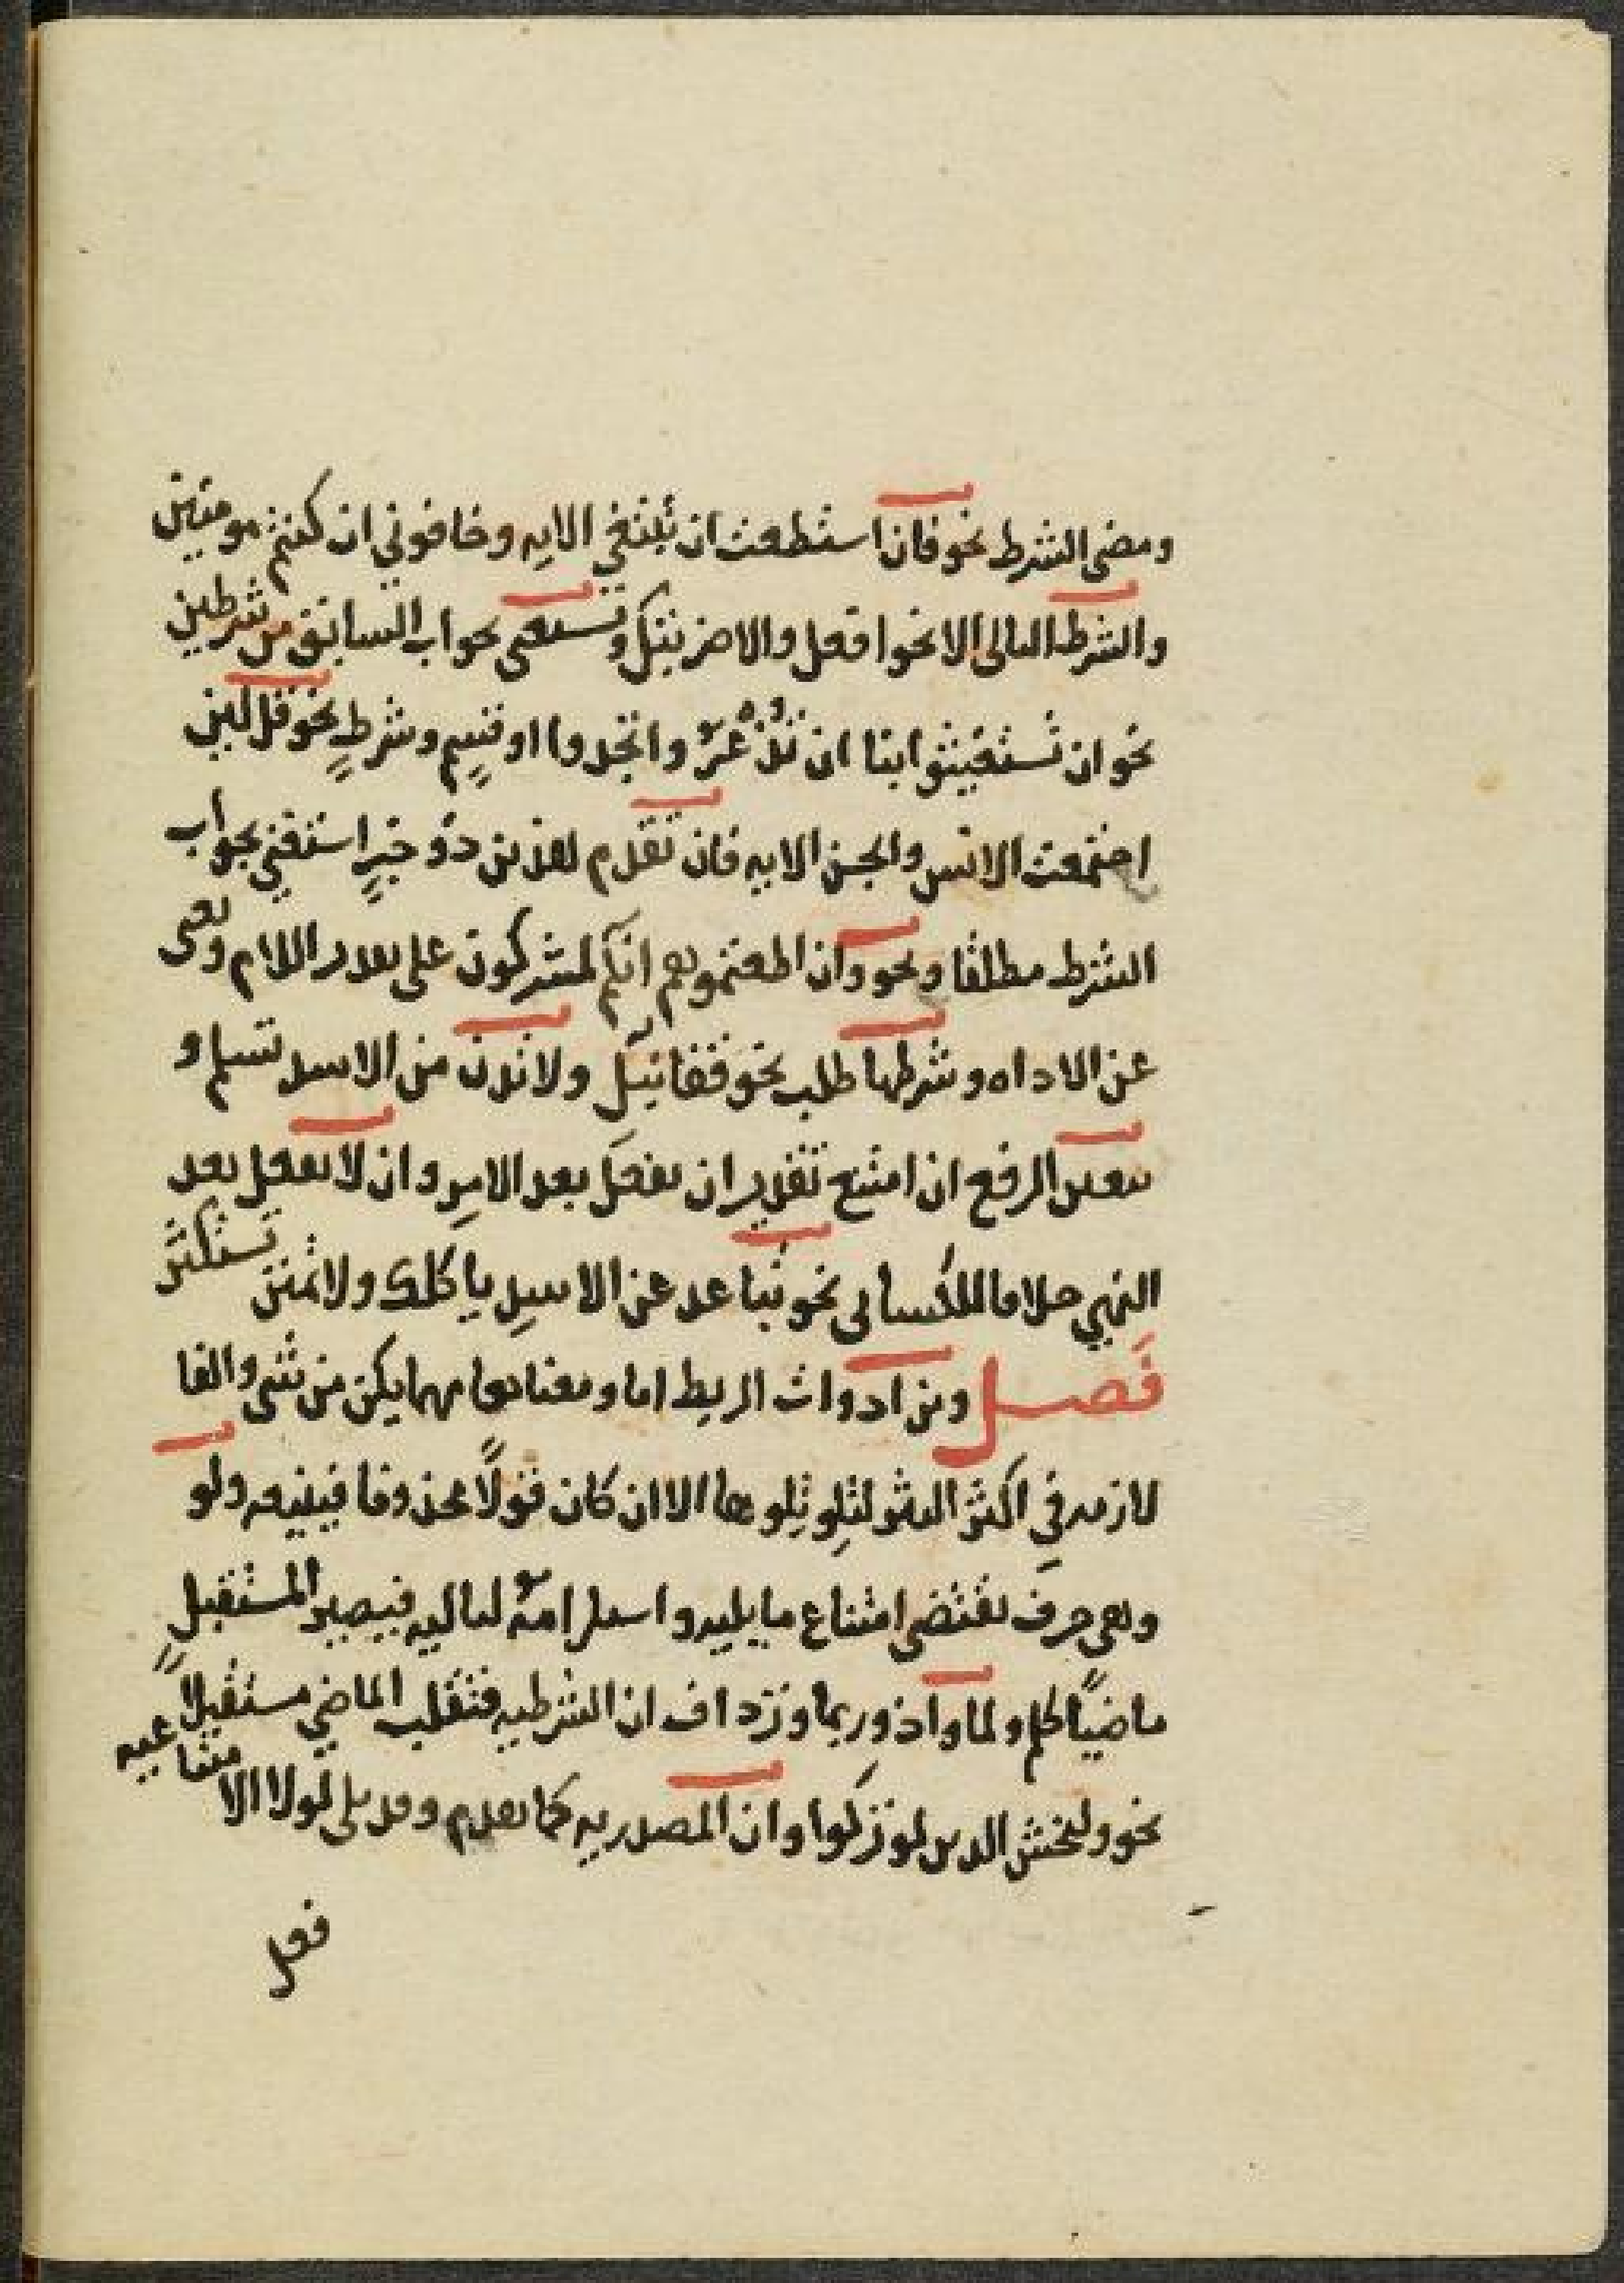 ومضى الشرط نحو فان استطعت ان تبتغي الايه وخافوني ان كنتم مومنين
والشرط التالى الا نحو افعل والا ضربتك وتستغنى بجواب السابق من شرطين
نحو ان تستغيثوا بنا ان تذعروا تجدوا او قسمٍ وشرطٍ نحو قل لين
اجتمعت الانس والجن الايه فان تقدم لهذين ذو خبرٍ استغني بجواب
الشرط مطلقا ونحو وان اطعتموهم انكم لمشركون على تقدير اللام وتغنى
عن الاداه وشرطها طلب نحو قفا نبك ولا تدن من الاسد تسلم و
تتعين الرفع ان امتنع تقدير ان تفعل بعد الامرِ وان لا تفعل بعد
النهي خلافا للكسائى نحو تباعد عن الاسدِ ياكلك ولا تمنن تستكثر
فصل ومن ادوات الربط اما ومعناها مهما يكن من شى والفا
لازمه في اكثر النثر لتلو تلوها الا ان كان قولًا محذوفا فيتبعه ولو
وهى حرف تقتضى امتناع ما يليه واستلزامه لتاليه فيصير المستقبل
ماضيًا كلم ولما واذ وربما وترداف ان الشرطيه فتقلب الماضي مستقبلا
نحو وليخش الذين لو تركوا وان المصدريه كما تقدم وقد تلى لولا الامتناعيه
فعل